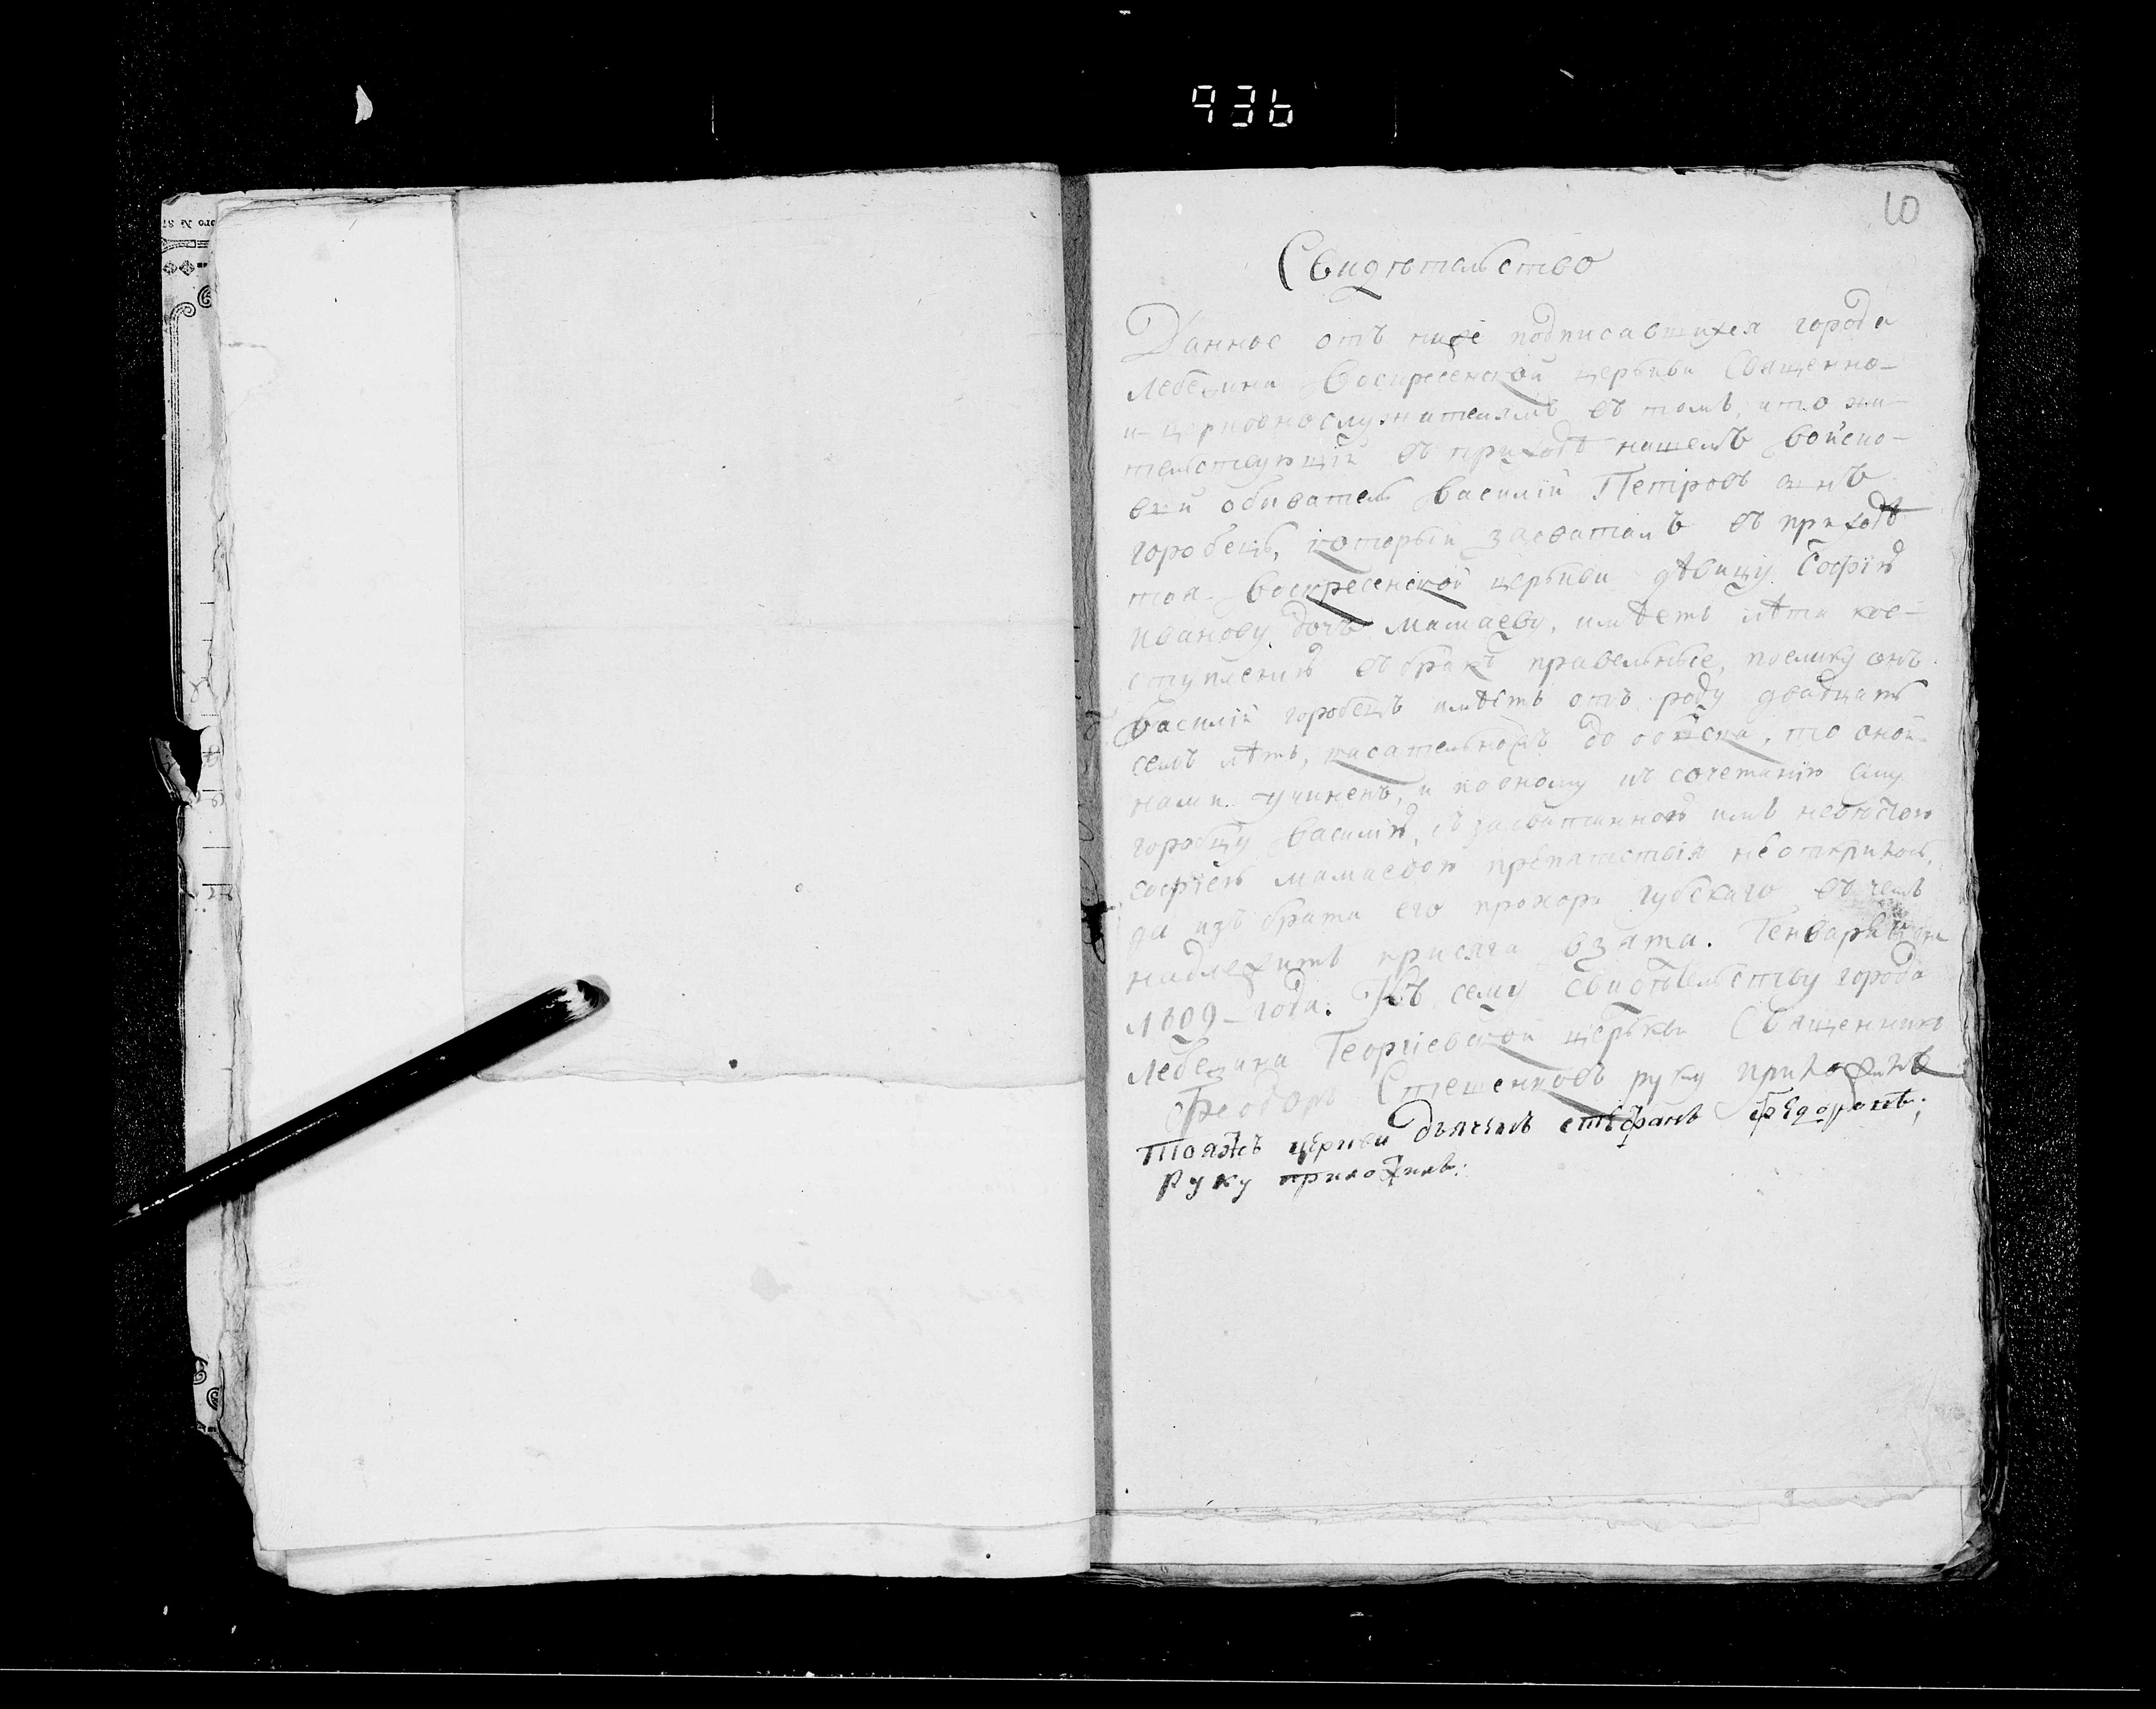 936
10
Свидѣтельство
Данное отъ ниже подписавшихся города
Лебедина Воскресенской церькви Священно-
и-церковнослужителямъ въ томъ, что жи-
тельствующій въ приходѣ нашемъ войско-
вий обиватель Василій Петровъ снъ
горобецъ, которьій засваталъ въ приходѣ
тоя-Воскресенской церькви дѣвицу Софію
Иванову дочь мамаеву, имѣетъ лѣта ко в-
ступленію въ бракъ правельные, поелику онъ
Василій горобецъ имѣетъ отъ роду двадцать
семъ лѣтъ, касательножъ до обиска, то оной
нами учиненъ, и по оному къ сочетанію ему
горобцу Василію, съ засватанною имъ невѣстою
софіею мамаевою препятствія не открилось,
да изъ брата его прохора губскаго въ чемъ
надлежитъ присяга взята. Генваря дня
1809-года. Къ сему свидѣтельству города
Лебедина Георгіевской церькви Священникъ
Феодоръ Стешенковъ руку приложилъ
тояжъ церкви дьячекъ стефанъ
руку приложилъ: